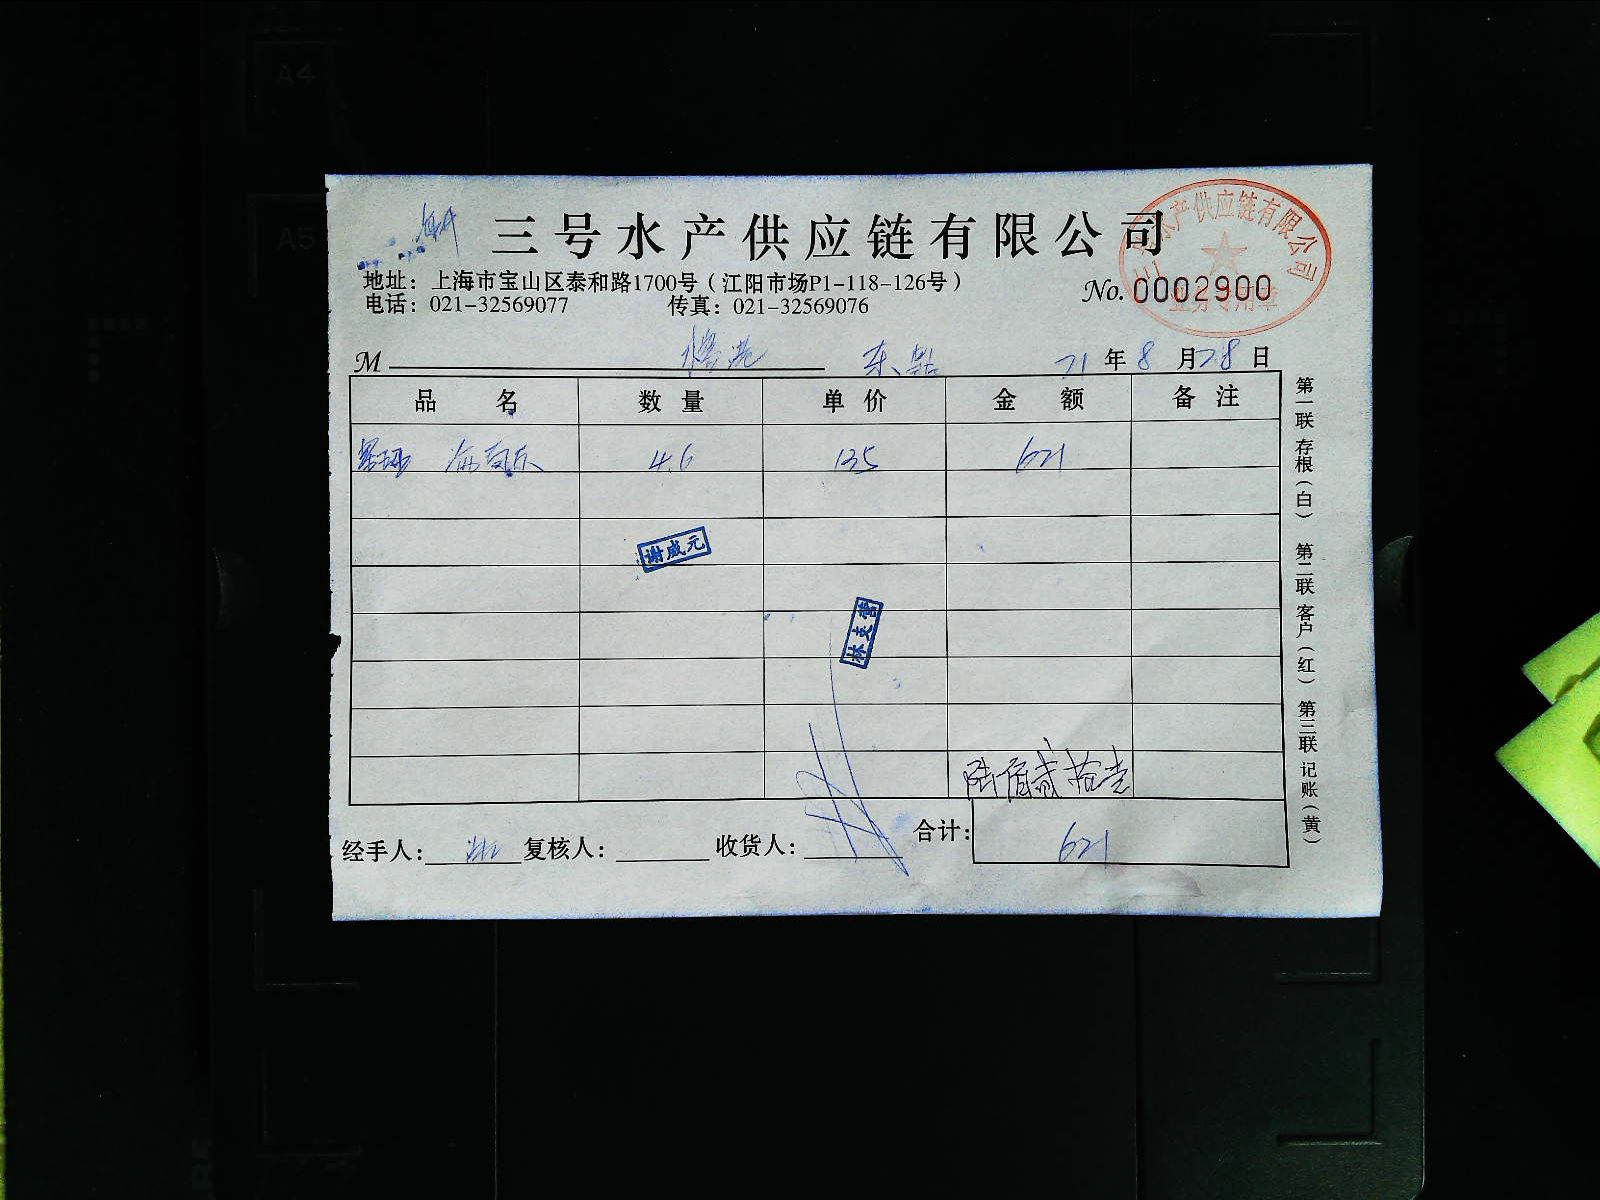 A4
A5
三号水产供应链有限公司
地址：上海市宝山区泰和路1700号（江阳市场P1-118-126号）
电话：021-32569077 传真：021-32569076
No. 0002900
三号水产供应链有限公司
业务专用章
M 21 年 8 月 28 日
品 名 数 量 单 价 金 额 备 注
4.6 135 621
谢威元
陆佰贰拾壹
经手人： 复核人： 收货人： 合计： 621
第一联 存根（白） 第二联 客户（红） 第三联 记账（黄）